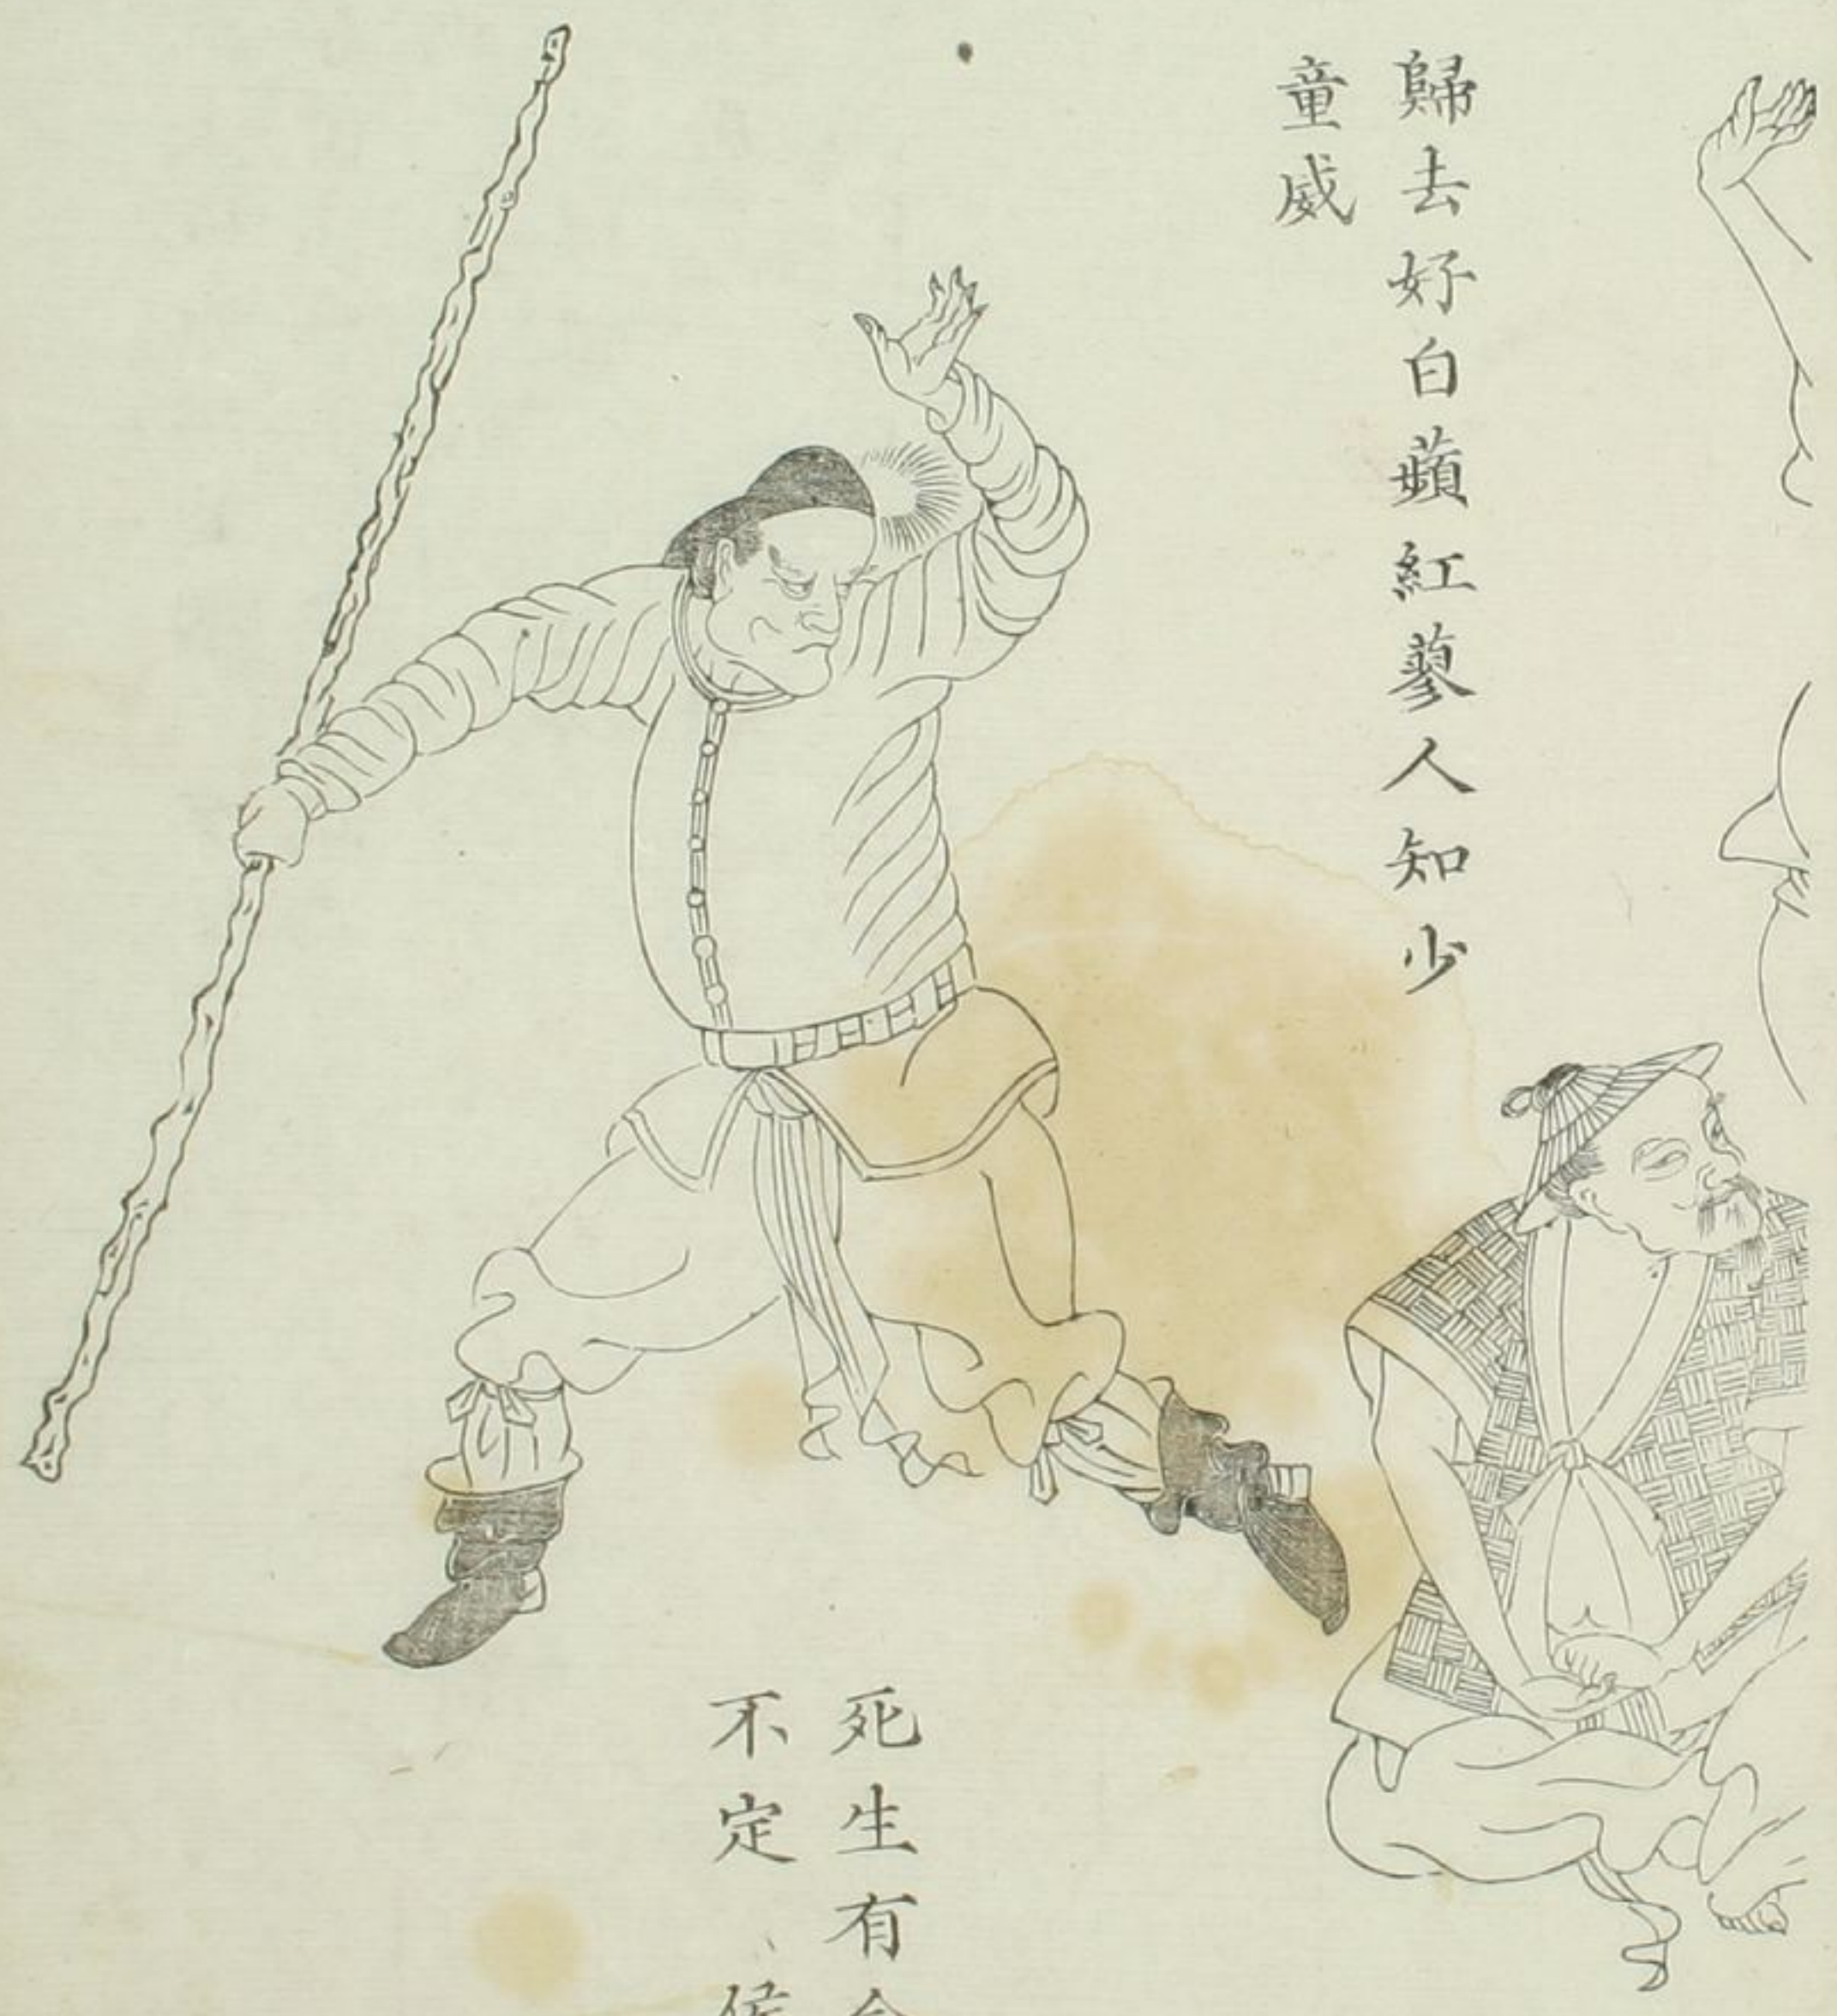 歸去好白蘋紅蓼人知少
童威
死生有
不定